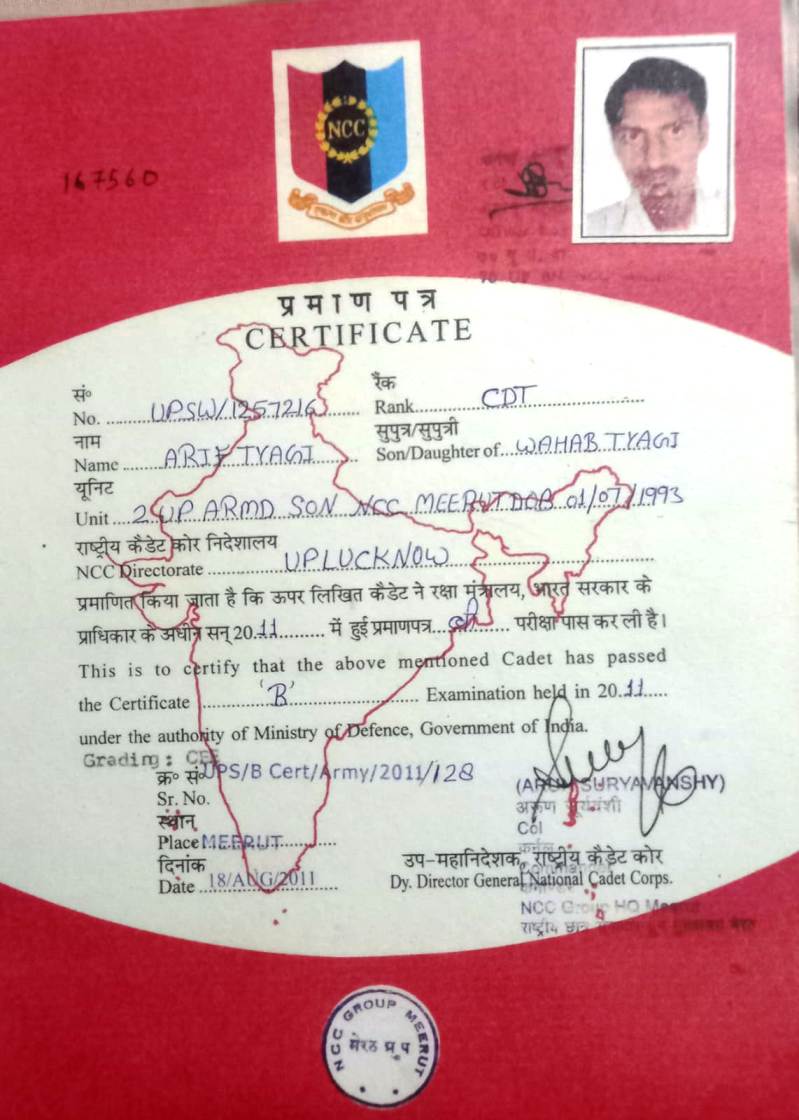 NCC
एकता और अनुशासन
167560
प्रमाण पत्र
CERTIFICATE
सं०
No. UPSW/1257216
रैंक
Rank CDT
नाम
Name ARIF TYAGI
सुपुत्र/सुपुत्री
Son/Daughter of WAHAB TYAGI
यूनिट
Unit 2 UP ARMD SQN NCC MEERUT DOB 01/07/1993
राष्ट्रीय कैडेट कोर निदेशालय
NCC Directorate UP LUCKNOW
प्रमाणित किया जाता है कि ऊपर लिखित कैडेट ने रक्षा मंत्रालय, भारत सरकार के
प्राधिकार के अधीन सन् 2011 में हुई प्रमाणपत्र बी परीक्षा पास कर ली है।
This is to certify that the above mentioned Cadet has passed
the Certificate 'B' Examination held in 2011
under the authority of Ministry of Defence, Government of India.
Grading :
क्र० सं० UPS/B Cert/Army/2011/128
Sr. No.
स्थान
Place MEERUT
दिनांक
Date 18/AUG/2011
(ARUN SURYAVANSHY)
अरूण सूर्यवंशी
Col
कर्नल
उप-महानिदेशक, राष्ट्रीय कैडेट कोर
Dy. Director General National Cadet Corps.
NCC Group HQ
राष्ट्रीय
NCC GROUP MEERUT
मेरठ ग्रुप